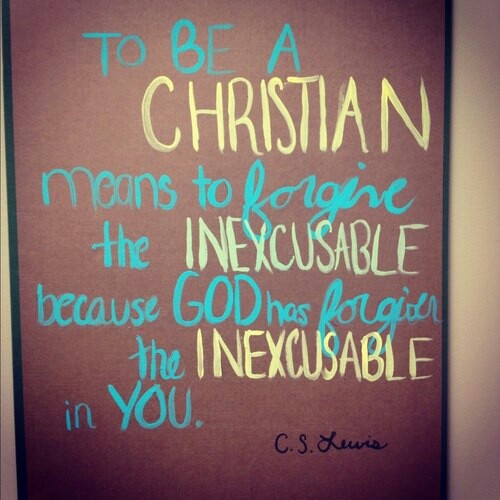 TO BE A
CHRISTIAN
means to forgive
the INEXCUSABLE
because GOD has forgiven
the INEXCUSABLE
in YOU.
C.S. Lewis